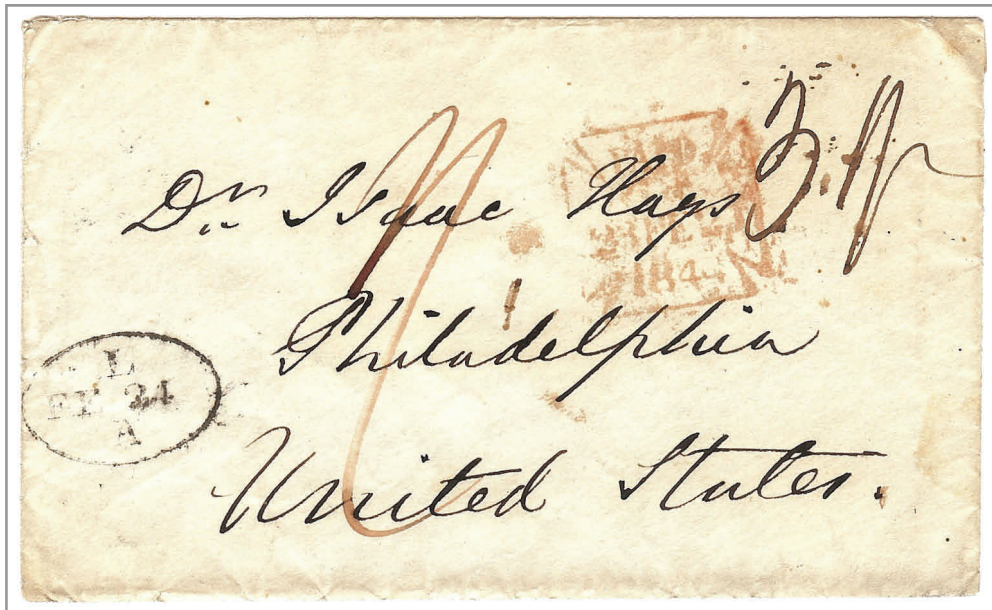 Dr. Isaac Hays
Philadelphia
United States.
L
FE 24
A
PAID
184